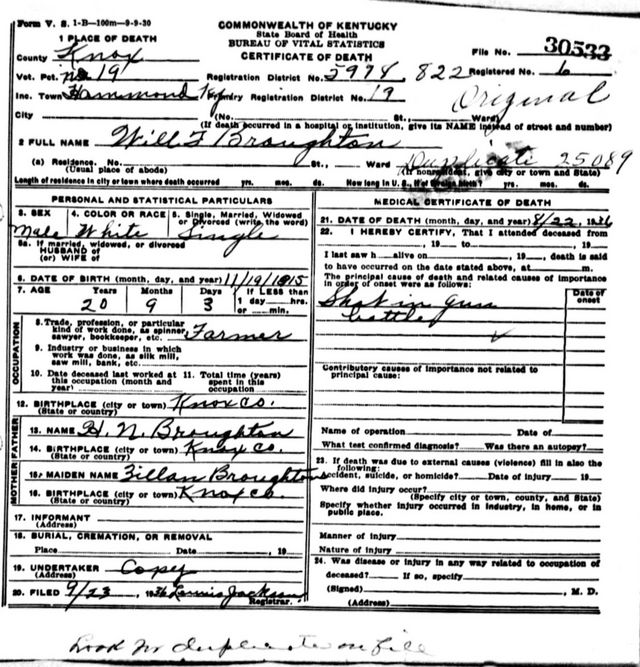 Form V. S. 1-B-100m-9-9-30
COMMONWEALTH OF KENTUCKY
State Board of Health
BUREAU OF VITAL STATISTICS
CERTIFICATE OF DEATH
File No. 30533
1 PLACE OF DEATH
County Knox
Vot. Pct. no 19 Registration District No. 5974 822 Registered No. 6
Inc. Town Hammond Ky Primary Registration District No. 19 Original
City (No. St., Ward)
(If death occurred in a hospital or institution, give its NAME instead of street and number)
2 FULL NAME Will F Broughton
(a) Residence. No. St., Ward Duplicate 25089
(Usual place of abode) (If nonresident, give city or town and State)
Length of residence in city or town where death occurred yrs. mos. ds. How long in U. S., if of foreign birth? yrs. mos. ds.
PERSONAL AND STATISTICAL PARTICULARS
3. SEX 4. COLOR OR RACE 5. Single, Married, Widowed
or Divorced (write the word)
Male White Single
5a. If married, widowed, or divorced
HUSBAND of
(or) WIFE of
6. DATE OF BIRTH (month, day, and year) 11/19/1915
7. AGE Years Months Days If LESS than
20 9 3 1 day hrs.
or min.
OCCUPATION
8. Trade, profession, or particular
kind of work done, as spinner,
sawyer, bookkeeper, etc. Farmer
9. Industry or business in which
work was done, as silk mill,
saw mill, bank, etc.
10. Date deceased last worked at 11. Total time (years)
this occupation (month and spent in this
year) occupation
12. BIRTHPLACE (city or town) Knox Co.
(State or country)
FATHER
13. NAME H. N. Broughton
14. BIRTHPLACE (city or town) Knox Co.
(State or country)
MOTHER
15. MAIDEN NAME Zillan Broughton
16. BIRTHPLACE (city or town) Knox Co.
(State or country)
17. INFORMANT
(Address)
18. BURIAL, CREMATION, OR REMOVAL
Place Date , 19
19. UNDERTAKER Copy
(Address)
20. FILED 9/23, 1936 Jackson
Registrar.
MEDICAL CERTIFICATE OF DEATH
21. DATE OF DEATH (month, day, and year) 8/22, 1936
22. I HEREBY CERTIFY, That I attended deceased from
, 19 to , 19
I last saw h alive on , 19 , death is said
to have occurred on the date stated above, at m.
The principal cause of death and related causes of importance
in order of onset were as follows:
Date of
onset
Shot in gun
battle
Contributory causes of importance not related to
principal cause:
Name of operation Date of
What test confirmed diagnosis? Was there an autopsy?
23. If death was due to external causes (violence) fill in also the
following:
Accident, suicide, or homicide? Date of injury 19
Where did injury occur?
(Specify city or town, county, and State)
Specify whether injury occurred in industry, in home, or in
public place.
Manner of injury
Nature of injury
24. Was disease or injury in any way related to occupation of
deceased? If so, specify
(Signed) , M. D.
(Address)
Look for duplicate on file